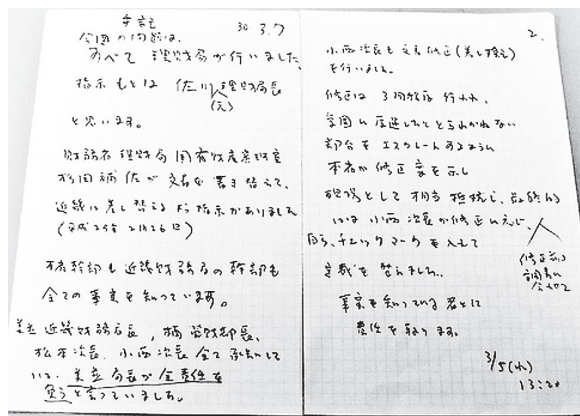 手記
30 3.7
今回の問題は、
すべて 理財局が行いました
指示もとは 佐川理財局長
(元)
と思います。
財務省理財局 国有財産
杉田補佐が 文書を書き替えて、
近畿に差し替える 指示がありました
(平成29年 2月26日)
本省幹部も近畿財務局の幹部も
全ての事実を知っています。
美並近畿財務局長、楠 部長、
松本次長、小西次長 全て承知して
いた。美並局長が全責任を
負うと言っていました。
2.
小西次長も文書修正(差し換え)
を行いました。
修正は 3 行われ、
本省が修正案を示し
現場として相当抵抗し、最終的
には小西次長が修正に応じ、
自ら、チェックマークを入れて
決裁を
修正前の
調書に
合わせて
事実を知っている者として
責任を取ります。
3/5(水)
13:20